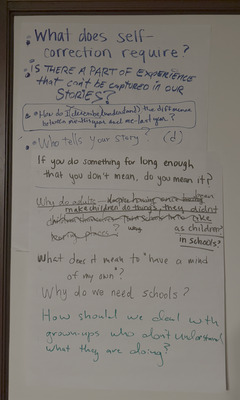 • What does self-
correction require?
• IS THERE A PART OF EXPERIENCE
that can't be captured in our
STORIES?
• How do I (describe/understand) the difference
between me this year and me last year?
• Who tells your story? (d)
If you do something for long enough
that you don't mean, do you mean it?
Why do adults
make children do things they didn't
like
as children?
in schools?
What does it mean to "have a mind
of my own"?
Why do we need schools?
How should we deal with
grown-ups who don't understand
what they are doing?